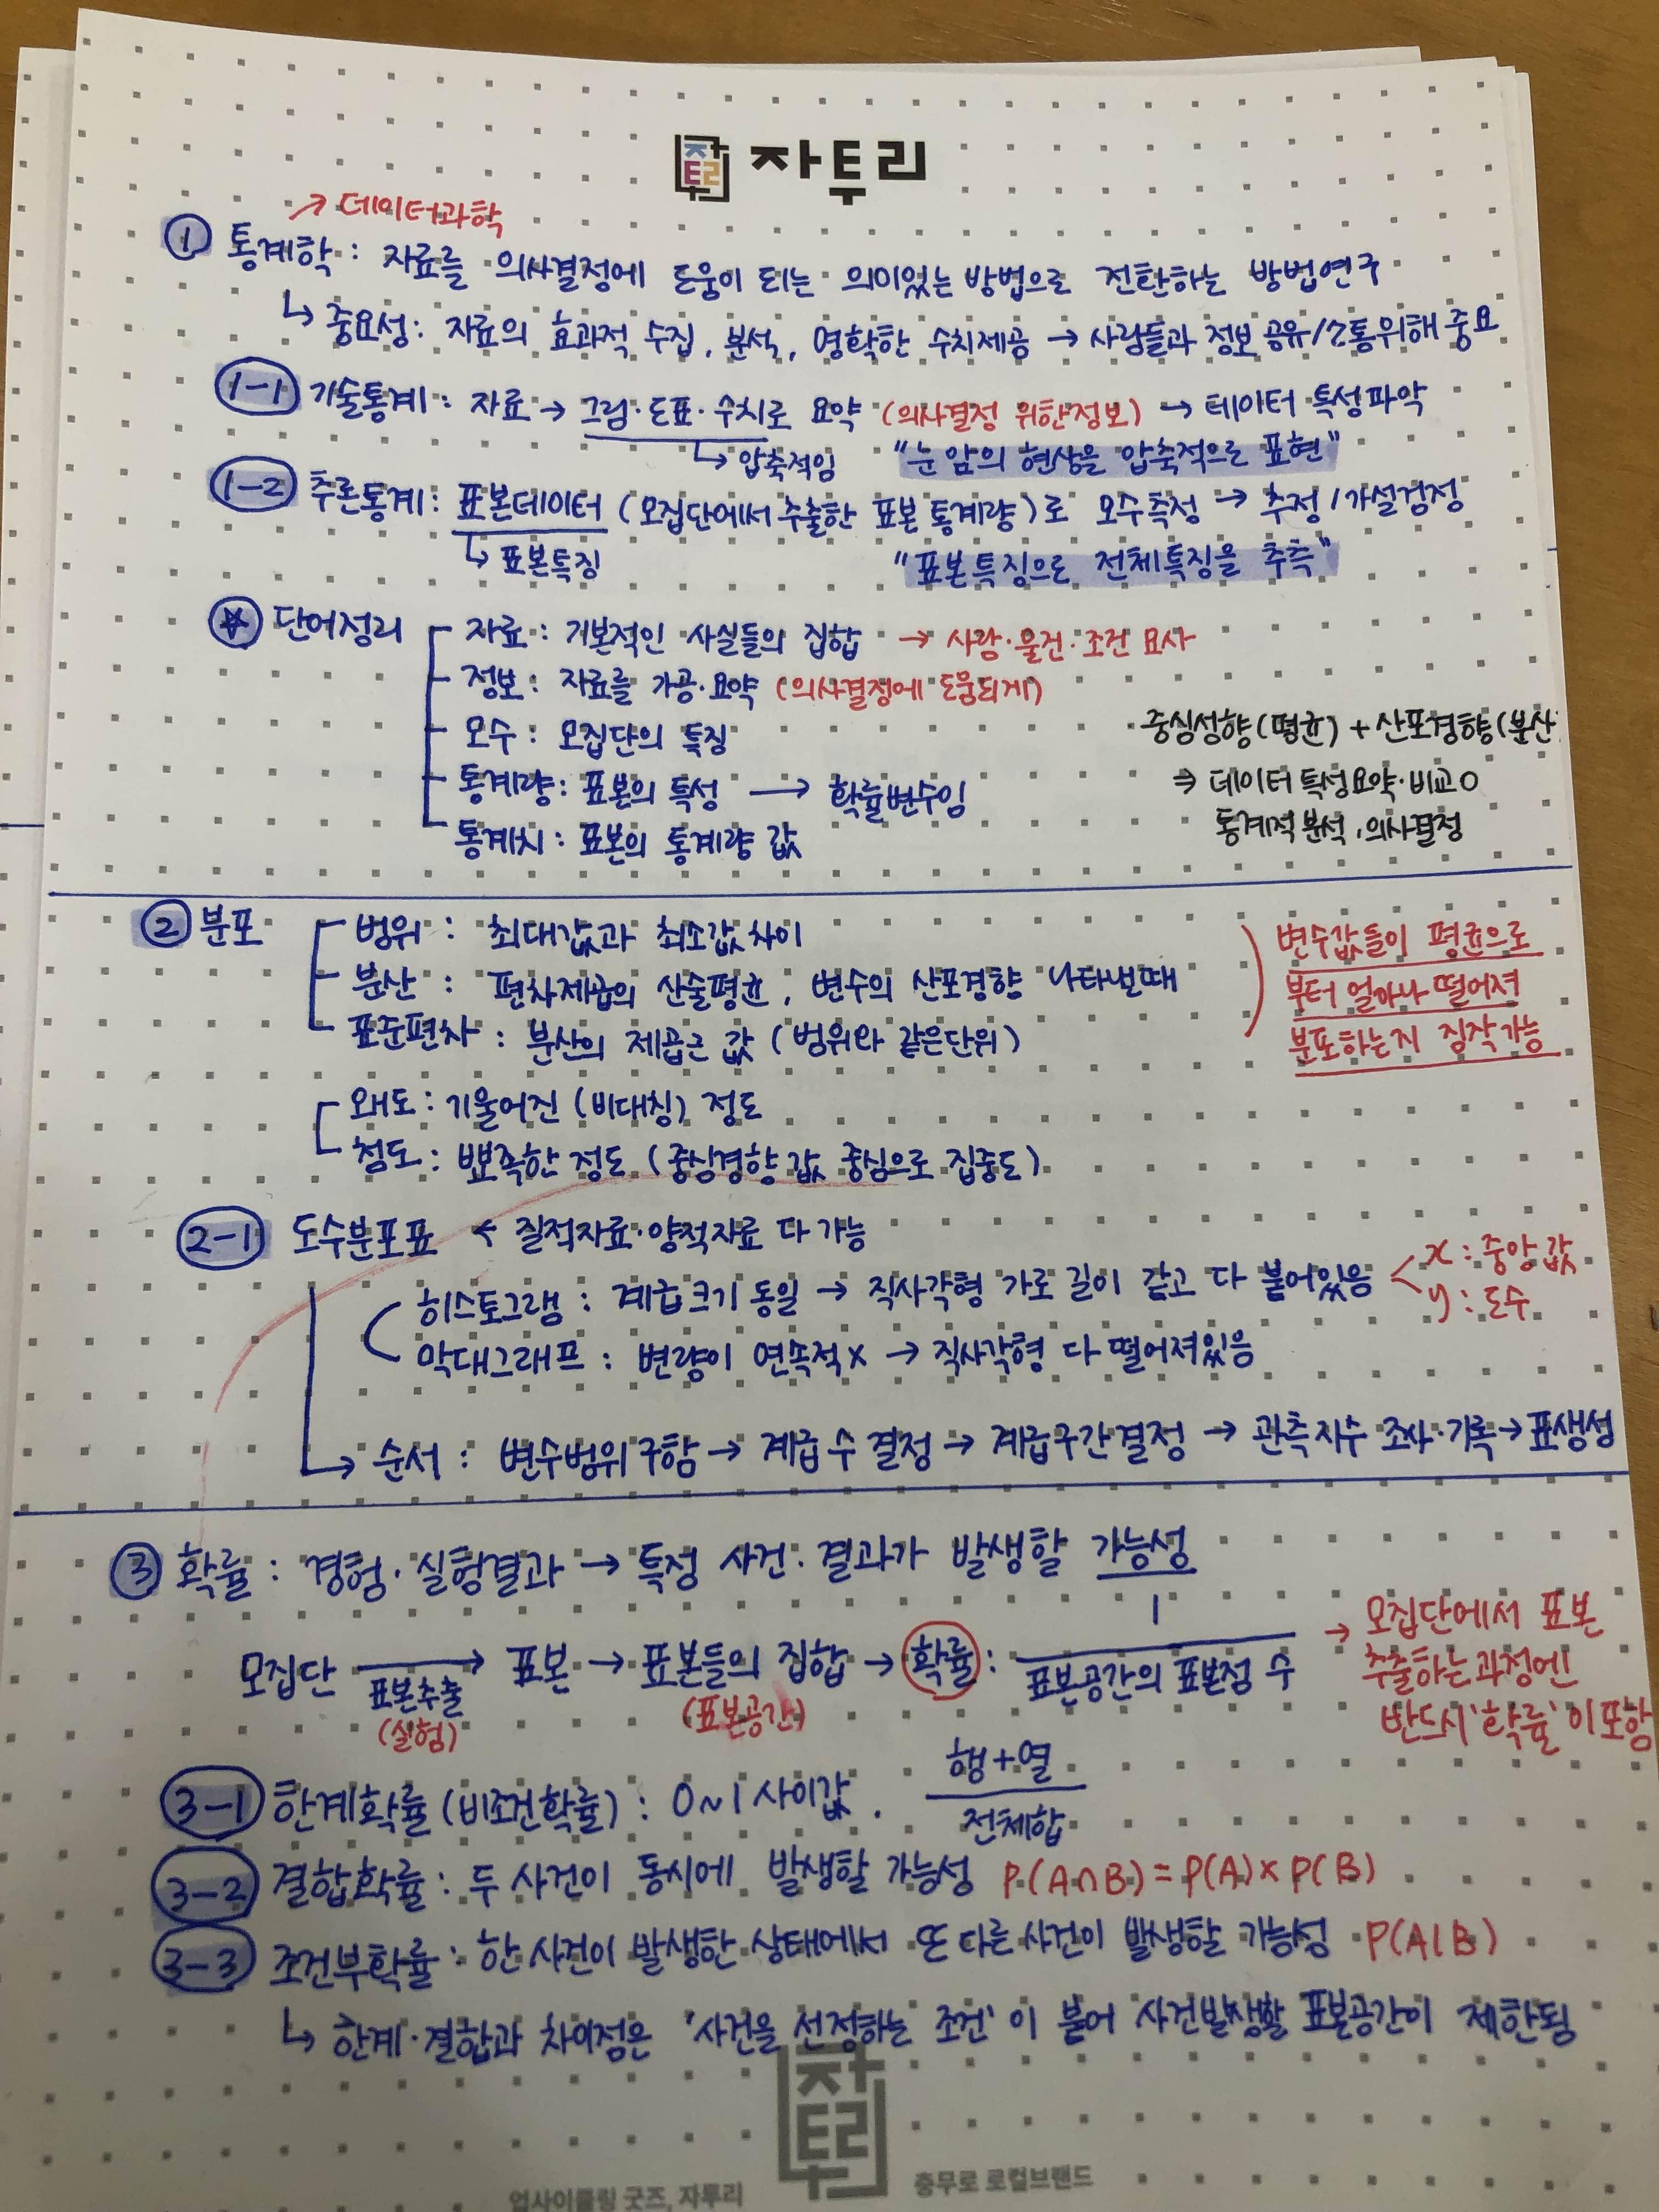 자투리
→ 데이터과학
① 통계학 : 자료를 의사결정에 도움이 되는 의미있는 방법으로 전환하는 방법연구
↳ 중요성 : 자료의 효과적 수집, 분석, 명확한 수치제공 → 사람들과 정보 공유/소통위해 중요
1-1 기술통계 : 자료 → 그림·도표·수치로 요약 (의사결정 위한정보) → 데이터 특성파악
↳ 압축적임 "눈 앞의 현상을 압축적으로 표현"
1-2 추론통계 : 표본데이터 (모집단에서 추출한 표본 통계량)로 모수측정 → 추정/가설검정
↳ 표본특징 "표본특징으로 전체특징을 추측"
☆ 단어정리
자료 : 기본적인 사실들의 집합 → 사람·물건·조건 묘사
정보 : 자료를 가공·요약 (의사결정에 도움되게)
모수 : 모집단의 특징
통계량 : 표본의 특성 → 확률변수임
통계치 : 표본의 통계량 값
중심성향(평균) + 산포경향(분산
⇒ 데이터 특성요약·비교 O
통계적 분석, 의사결정
② 분포
범위 : 최대값과 최소값 차이
분산 : 편차제곱의 산술평균, 변수의 산포경향 나타낼때
표준편차 : 분산의 제곱근 값 (범위와 같은단위)
변수값들이 평균으로
부터 얼마나 떨어져
분포하는지 짐작가능
왜도 : 기울어진 (비대칭) 정도
첨도 : 뾰족한 정도 (중심경향 값 중심으로 집중도)
2-1 도수분포표 < 질적자료·양적자료 다 가능
히스토그램 : 계급크기 동일 → 직사각형 가로 길이 같고 다 붙어있음 < x : 중앙값
y : 도수
막대그래프 : 변량이 연속적 x → 직사각형 다 떨어져있음
→ 순서 : 변수범위 구함 → 계급 수 결정 → 계급구간 결정 → 관측치수 조사·기록 → 표생성
③ 확률 : 경험·실험결과 → 특정 사건·결과가 발생할 가능성
모집단 → 표본 → 표본들의 집합 → 확률 : 1
표본추출 표본공간의 표본점 수
(실험) (표본공간)
→ 모집단에서 표본
추출하는 과정엔
반드시 '확률'이 포함
3-1 한계확률 (비조건확률) : 0~1 사이값. 행+열
전체합
3-2 결합확률 : 두 사건이 동시에 발생할 가능성 P(A∩B) = P(A) x P(B)
3-3 조건부확률 : 한 사건이 발생한 상태에서 또 다른 사건이 발생할 가능성 P(A|B)
↳ 한계·결합과 차이점은 '사건을 선정하는 조건'이 붙어 사건발생할 표본공간이 제한됨
자투리
업사이클링 굿즈, 자투리 충무로 로컬브랜드